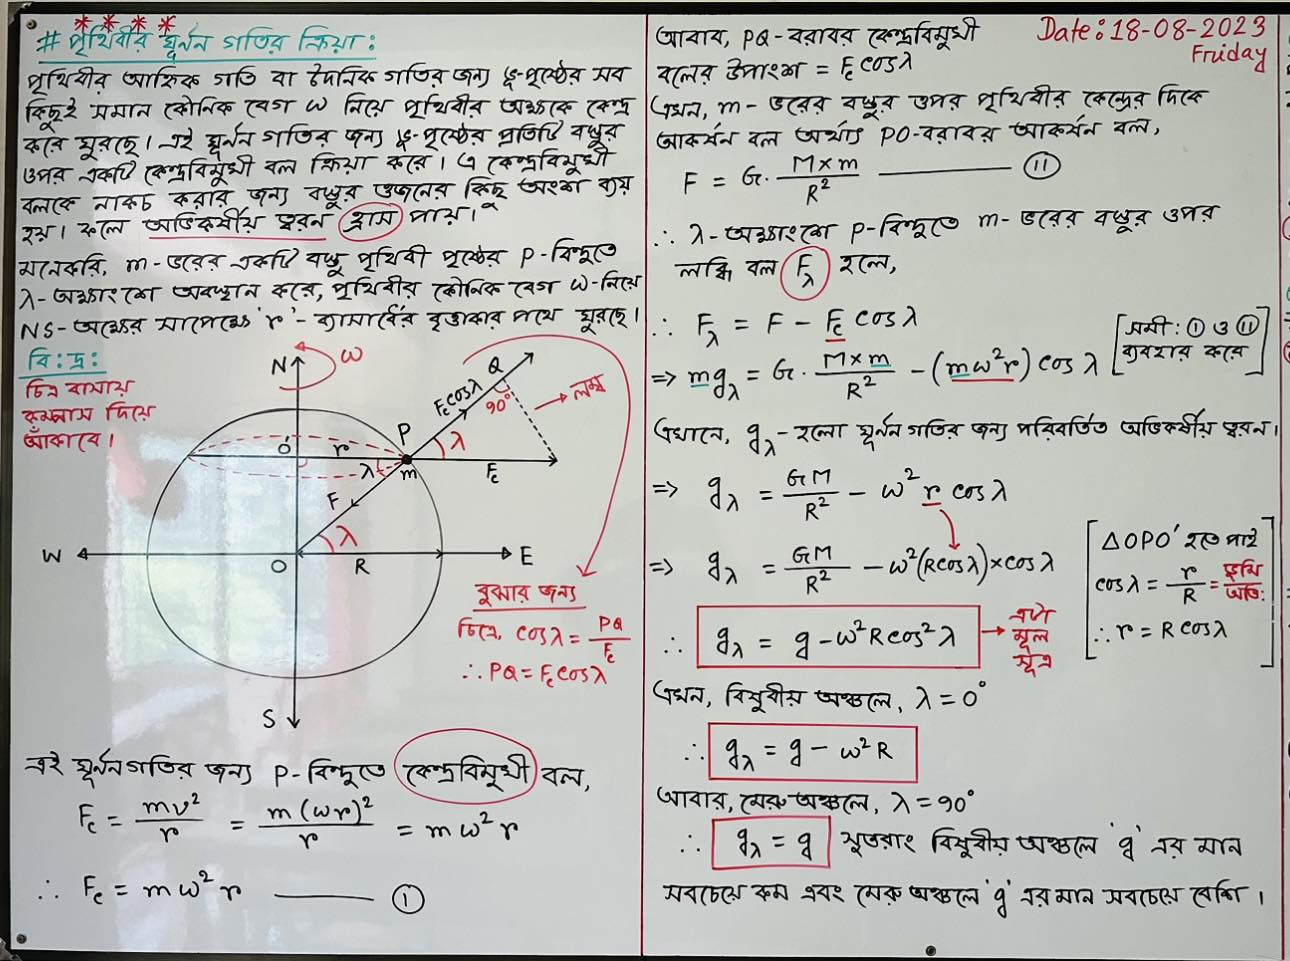 * * * *
# পৃথিবীর ঘূর্নন গতির ক্রিয়া:
পৃথিবীর আহ্নিক গতি বা দৈনিক গতির জন্য ভূ-পৃষ্ঠের সব
কিছুই সমান কৌনিক বেগ ω নিয়ে পৃথিবীর অক্ষকে কেন্দ্র
করে ঘুরছে। এই ঘূর্নন গতির জন্য ভূ-পৃষ্ঠের প্রতিটি বস্তুর
ওপর একটি কেন্দ্রবিমুখী বল ক্রিয়া করে। এ কেন্দ্রবিমুখী
বলকে নাকচ করার জন্য বস্তুর ওজনের কিছু অংশ ব্যয়
হয়। ফলে অভিকর্ষীয় ত্বরন হ্রাস পায়।
মনেকরি, m-ভরের একটি বস্তু পৃথিবী পৃষ্ঠের P-বিন্দুতে
λ-অক্ষাংশে অবস্থান করে, পৃথিবীর কৌনিক বেগ ω-নিয়ে
NS-অক্ষের সাপেক্ষে 'r'-ব্যাসার্ধের বৃত্তাকার পথে ঘুরছে।
বি:দ্র:
চিত্র বাসায়
কম্পাস দিয়ে
আঁকাবে।
N
ω
Fc cosλ
Q
90°
লম্ব
P
O'
r
λ
m
λ
Fc
F
λ
W
O
R
E
S
বুঝার জন্য
চিত্রে, cosλ = PQ/Fc
∴ PQ = Fc cosλ
এই ঘূর্ননগতির জন্য P-বিন্দুতে কেন্দ্রবিমুখী বল,
Fc = mv²/r = m(ωr)²/r = mω²r
∴ Fc = mω²r ——— ①
Date: 18-08-2023
Friday
আবার, PQ-বরাবর কেন্দ্রবিমুখী
বলের উপাংশ = Fc cosλ
এখন, m-ভরের বস্তুর ওপর পৃথিবীর কেন্দ্রের দিকে
আকর্ষন বল অর্থাৎ PO-বরাবর আকর্ষন বল,
F = G. M×m/R² ——— ⑪
∴ λ-অক্ষাংশে P-বিন্দুতে m-ভরের বস্তুর ওপর
লব্ধি বল Fλ হলে,
∴ Fλ = F - Fc cosλ
=> mgλ = G. M×m/R² - (mω²r) cosλ
[সমী: ① ও ⑪
ব্যবহার করে]
এখানে, gλ-হলো ঘূর্নন গতির জন্য পরিবর্তিত অভিকর্ষীয় ত্বরন।
=> gλ = GM/R² - ω²r cosλ
=> gλ = GM/R² - ω²(Rcosλ)×cosλ
[ΔOPO' হতে পাই
cosλ = r/R = ভূমি/অতি:
∴ r = R cosλ]
∴ gλ = g - ω²Rcos²λ
এটা
মূল
সূত্র
এখন, বিষুবীয় অঞ্চলে, λ = 0°
∴ gλ = g - ω²R
আবার, মেরু অঞ্চলে, λ = 90°
∴ gλ = g সুতরাং বিষুবীয় অঞ্চলে 'g' এর মান
সবচেয়ে কম এবং মেরু অঞ্চলে 'g' এর মান সবচেয়ে বেশি।